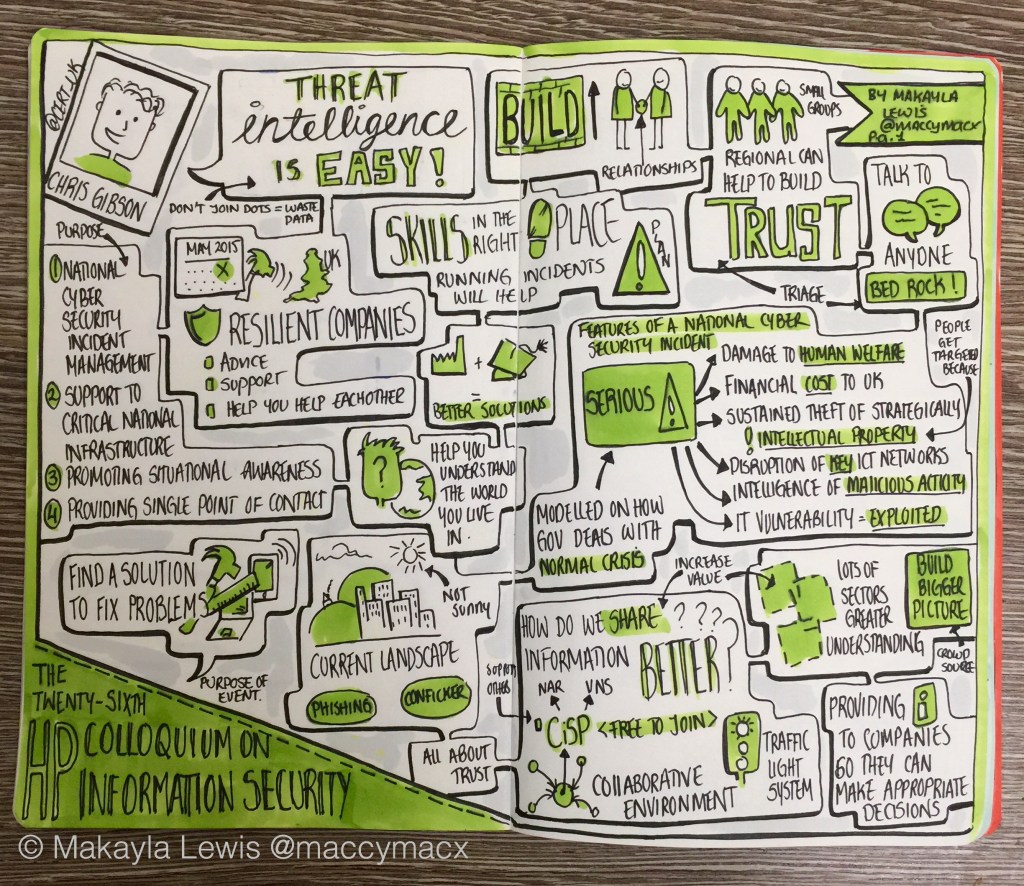 @CERT_UK
CHRIS GIBSON
THREAT
intelligence
IS EASY!
DON'T JOIN DOTS = WASTE
DATA
PURPOSE
1 NATIONAL
CYBER
SECURITY
INCIDENT
MANAGEMENT
2 SUPPORT TO
CRITICAL NATIONAL
INFRASTRUCTURE
3 PROMOTING SITUATIONAL AWARENESS
4 PROVIDING SINGLE POINT OF CONTACT
MAY 2015
UK
RESILIENT COMPANIES
ADVICE
SUPPORT
HELP YOU HELP EACHOTHER
BUILD
RELATIONSHIPS
SKILLS IN THE
RIGHT PLACE
RUNNING INCIDENTS
WILL HELP
PLAN
SMALL
GROUPS
REGIONAL CAN
HELP TO BUILD
TRUST
TRIAGE
BY MAKAYLA
LEWIS
@MACCYMACX
Pg. 7
TALK TO
ANYONE
BED ROCK!
+
=
BETTER SOLUTIONS
?
HELP YOU
UNDERSTAND
THE WORLD
YOU LIVE
IN.
FEATURES OF A NATIONAL CYBER
SECURITY INCIDENT
SERIOUS
DAMAGE TO HUMAN WELFARE
FINANCIAL COST TO UK
SUSTAINED THEFT OF STRATEGICALLY
! INTELLECTUAL PROPERTY
DISRUPTION OF KEY ICT NETWORKS
INTELLIGENCE OF MALICIOUS ACTICITY
IT VULNERABILITY = EXPLOITED
PEOPLE
GET
TARGETED
BECAUSE
MODELLED ON HOW
GOV DEALS WITH
NORMAL CRISIS
FIND A SOLUTION
TO FIX PROBLEM
PURPOSE OF
EVENT.
NOT
SUNNY
CURRENT LANDSCAPE
PHISHING
CONFICKER
INCREASE
VALUE
HOW DO WE SHARE ????
INFORMATION BETTER?
NAR VNS
SUPPORT
OTHERS
CiSP <FREE TO JOIN>
COLLABORATIVE
ENVIRONMENT
TRAFFIC
LIGHT
SYSTEM
ALL ABOUT
TRUST
LOTS OF
SECTORS
GREATER
UNDERSTANDING
BUILD
BIGGER
PICTURE
CROWD
SOURCE
PROVIDING i
TO COMPANIES
SO THEY CAN
MAKE APPROPRIATE
DECISIONS
THE
TWENTY-SIXTH
HP COLLOQUIUM ON
INFORMATION SECURITY
© Makayla Lewis @maccymacx